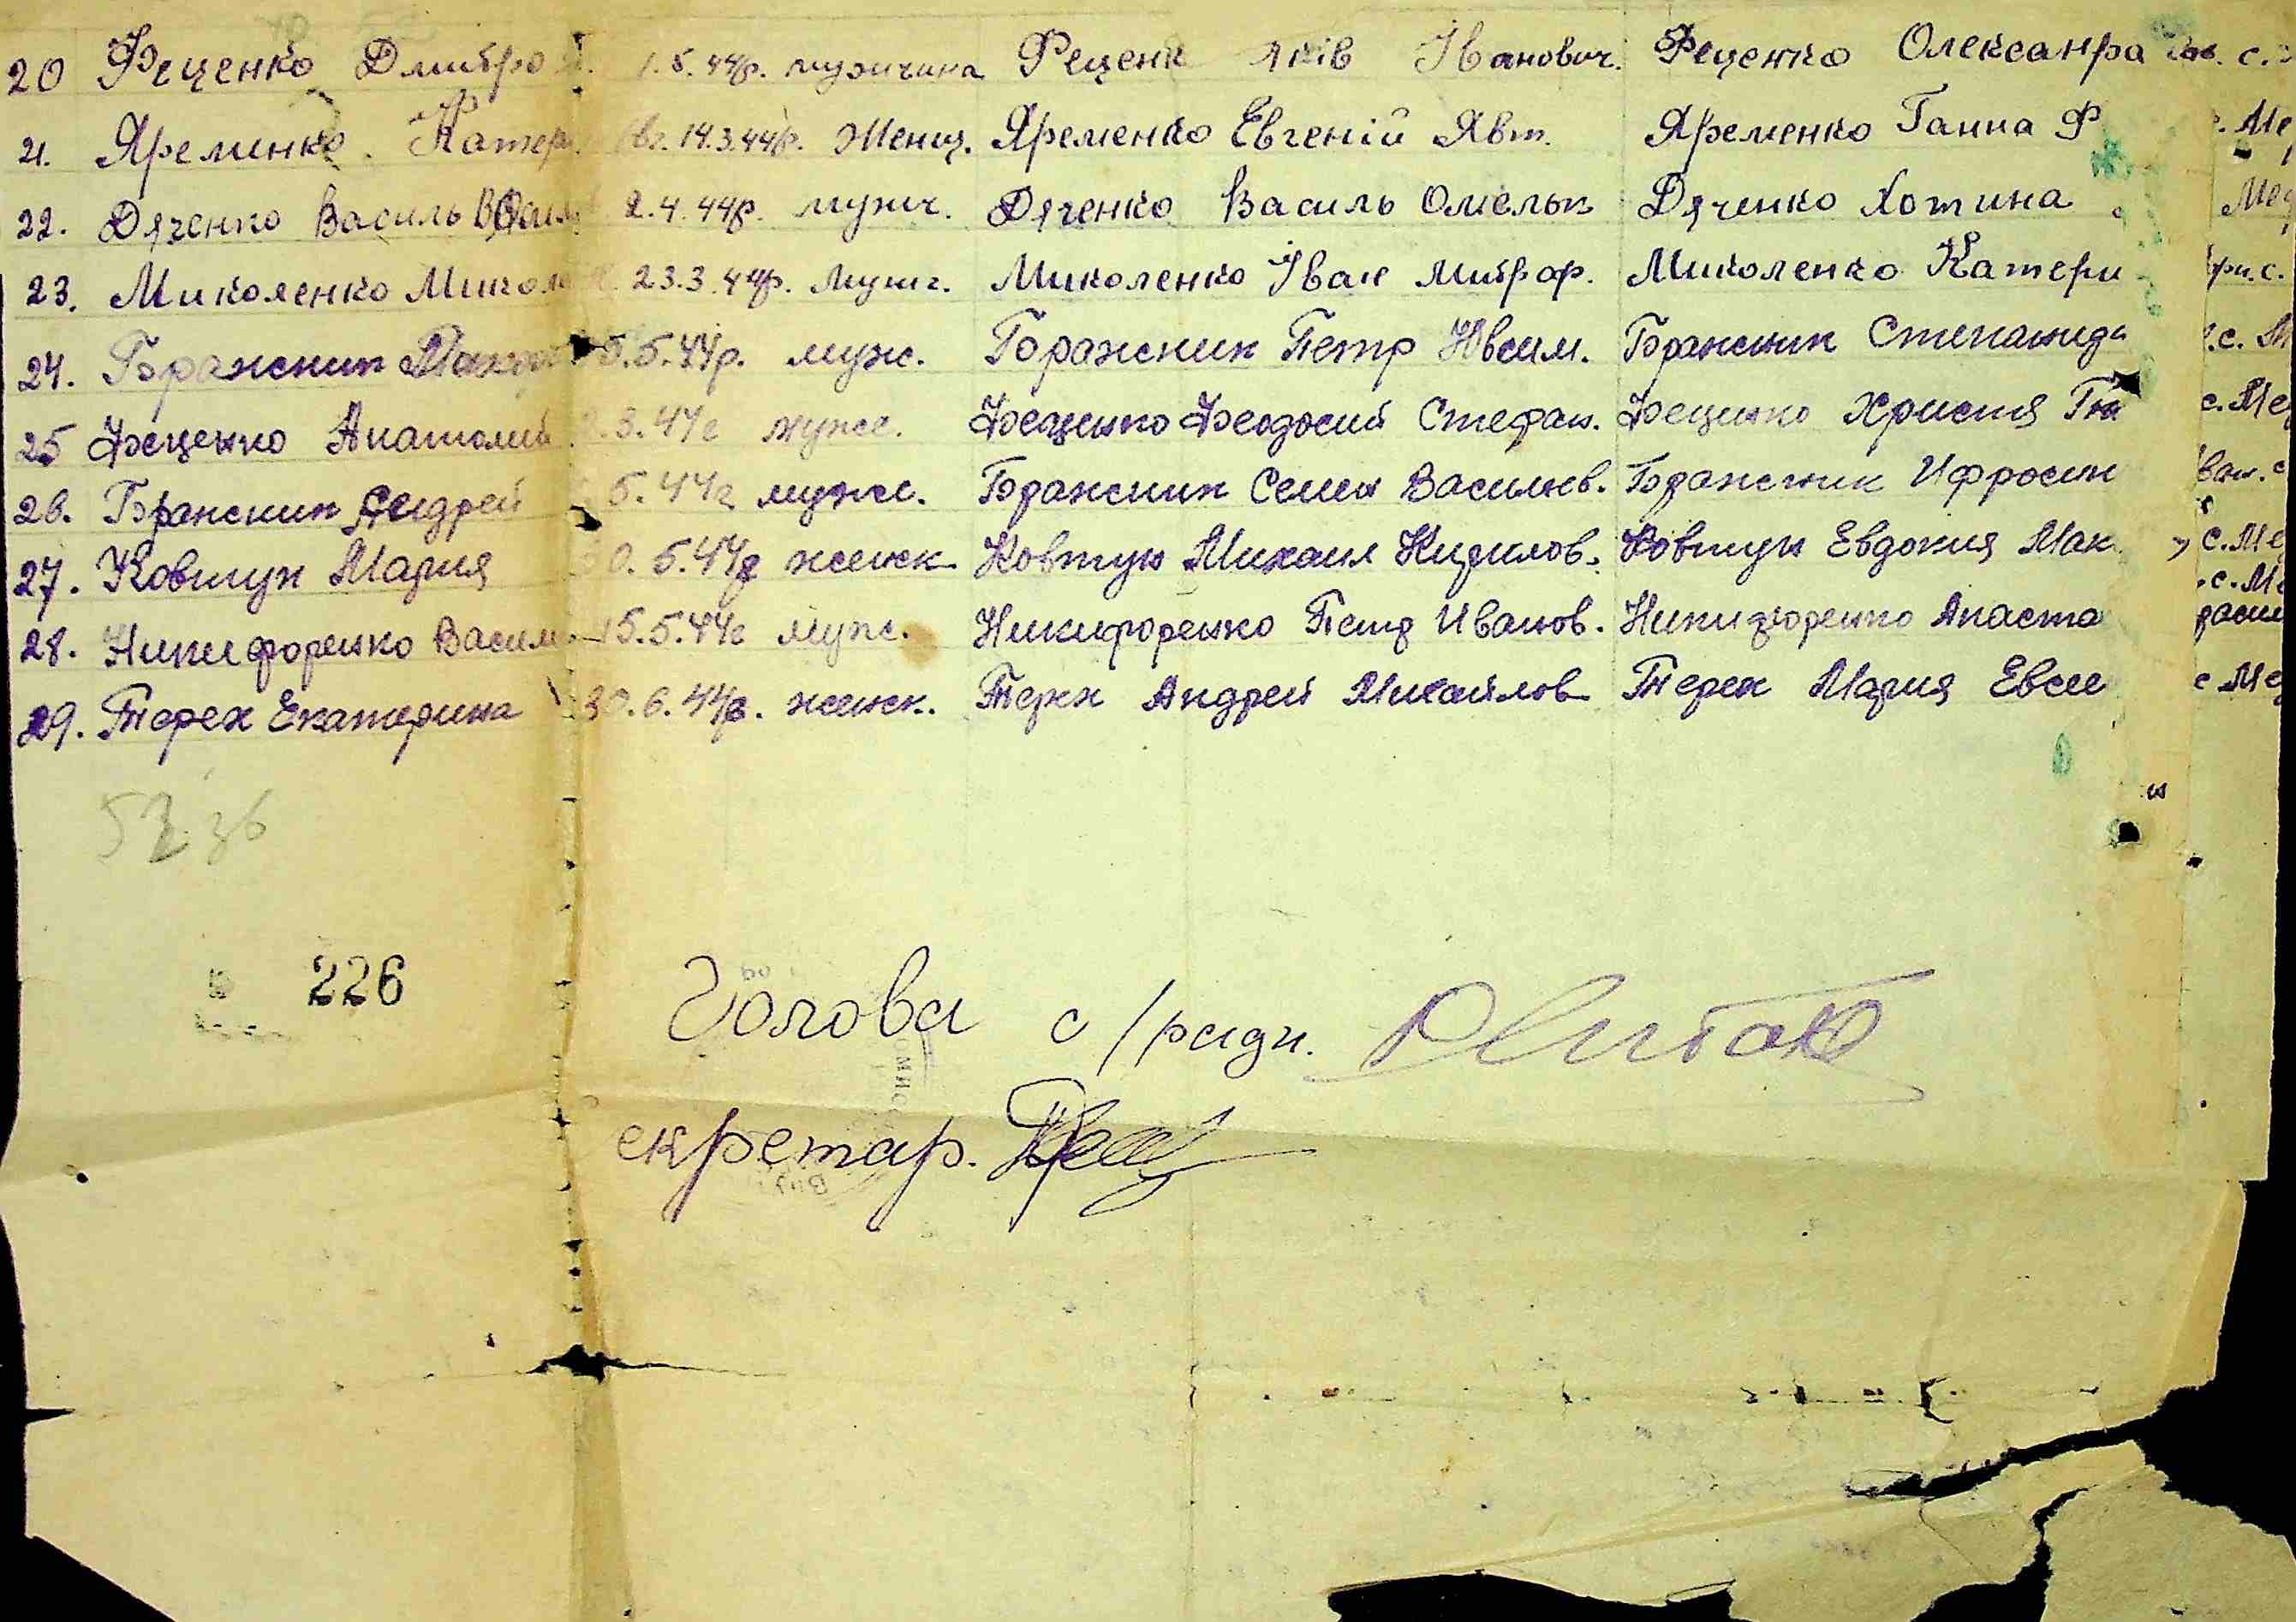 20 Феценко Дмитро 1.5.44р. мужчина Феценк Яків Іванович. Феценко Олександра с.
21. Яременко Катер 14.3.44р. Женщ. Яременко Евгеній Явт. Яременко Ганна Ф с. Ме
22. Дяченко Василь Васил 2.4.44р. мужч. Дяченко Василь Омельк Дяченко Хотина Мед
23. Миколенко Микол 23.3.44р. Мужч. Миколенко Іван Митроф. Миколенко Катери ри. с.
24. Бражник 5.5.44р. муж. Бражник Петр Бражник Степанида .с. М
25 Феценко Анатолий .3.44г мужс. Феценко Феодосий Стефан. Феценко Христя с. Ме
26. Бражник Андрей 5.44г мужс. Бражник Семен Васильев. Бражник Ифросин ван. с
27. Ковтун Мария 0.5.44г женск Ковтун Михаил Кирилов. Ковтун Евдокия Мак с. Ме
.с. Ме
28. Никифоренко Васил 15.5.44г Мужс. Никифоренко Петр Иванов. Никифоренко Анаста
29. Терех Екатерина 30.6.44р. женск. Терех Андрей Михайлов Терех Мария Евсе с Ме
226
Голова с/ради.
екретар.